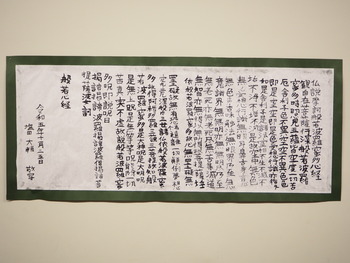 仏説摩訶般若波羅蜜多心経
観自在菩薩行深般若波羅
蜜多時照見五蘊皆空度一切苦
厄舎利子色不異空空不異色色
即是空空即是色受想行識亦復
如是舎利子是諸法空相不生不
無色声香味触法無眼界乃至無
意識界無無明亦無無明尽乃至
無老死亦無老死尽無苦集滅道
無智亦無得以無所得故菩提薩
罣礙故無有恐怖遠離一切顛倒夢想
究竟涅槃三世諸仏依般若波羅蜜
多故得阿耨多羅三藐三菩提故知般
若波羅蜜多是大神呪是大明呪
是無上呪是無等等呪能除一切
苦真実不虚故説般若波羅蜜
多呪即説呪曰
羯諦羯諦波羅羯諦波羅僧羯諦菩
提薩婆訶
般若心経
令和五年十月五日
敬写